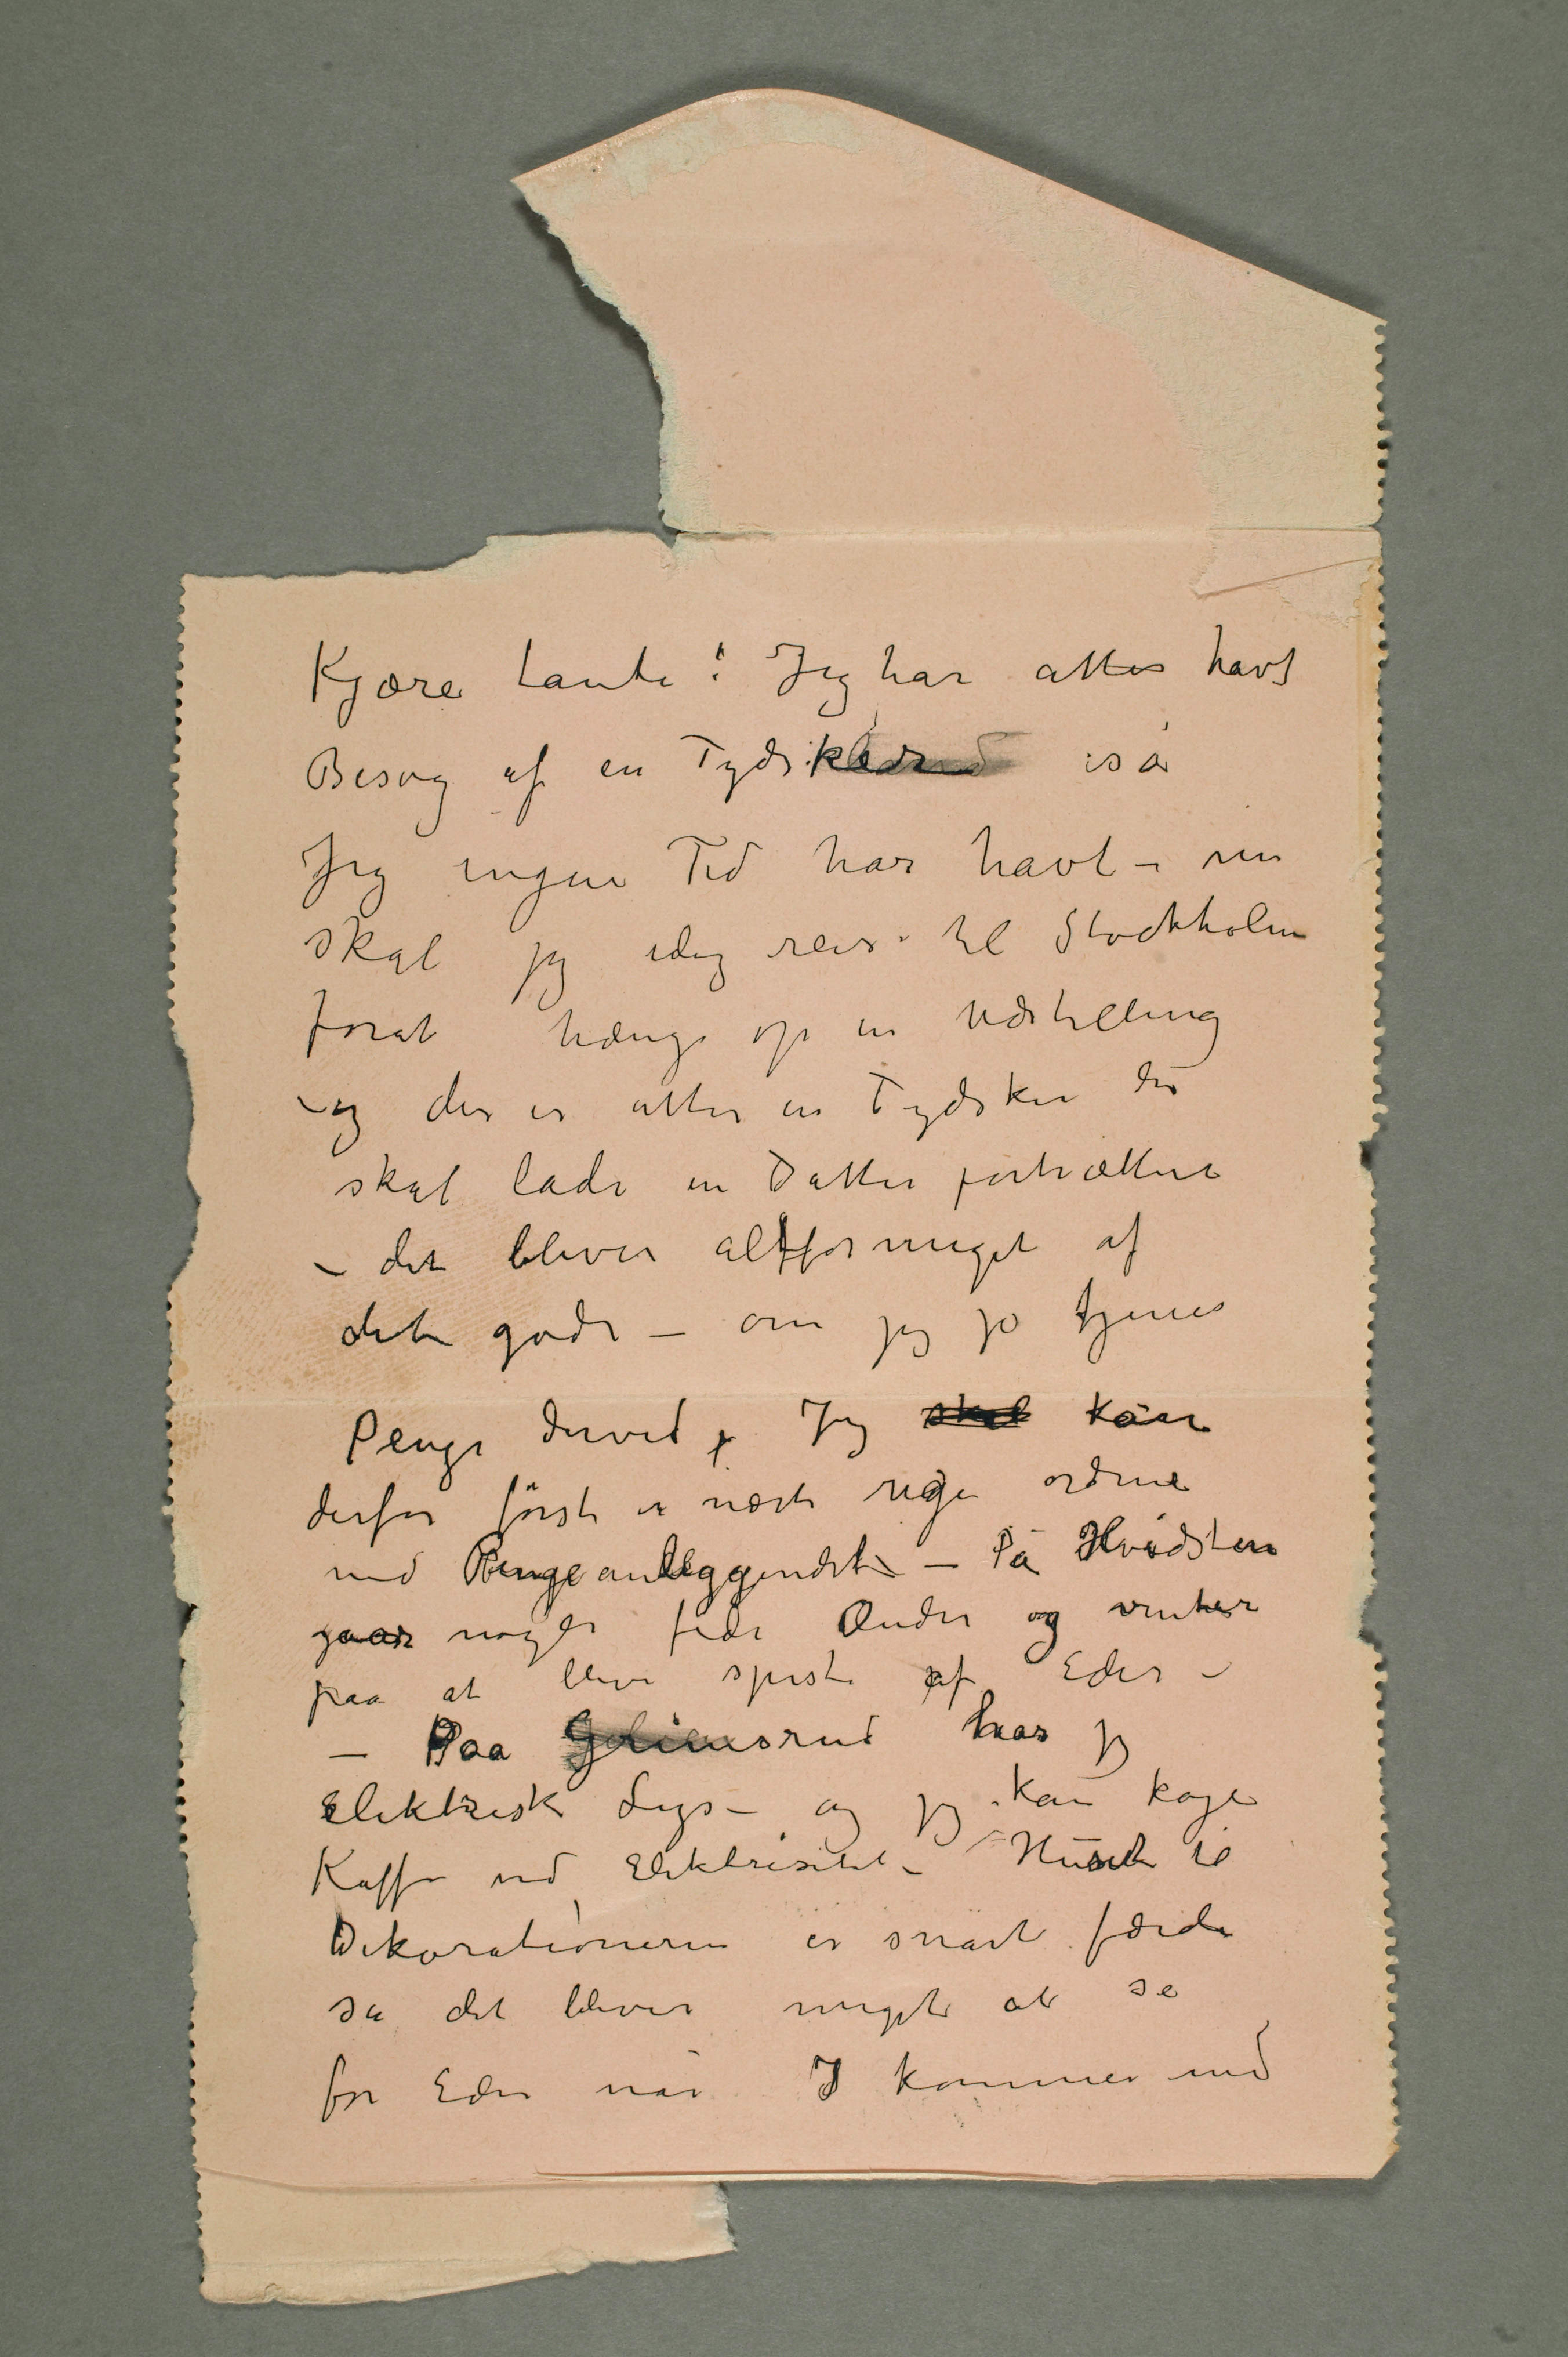 Kjære tante! Jeg har atter havt
Besøg af en Tydsk så
Jeg ingen Tid har havt – nu
skal jeg idag reise til Stockholm
forat hænge op en Udstilling
– og der er atter en Tydsker der
skal lade en Datter portrættere
– det bliver altfor meget af
det gode – om jeg jo tjener
Penge derved, Jeg skal kan
derfor først i næste uge ordne
med Pengeanliggendet – På Hvidsten
gaar nogle fede Ænder og venter
paa at blive spist af Eder –
– Paa Grimsrud har jeg
Elektrisk Lys – og jeg kan koge
Kaffe med Elektrisitet – Huset til
Dekorationerne er snart færdig
så det bliver meget at se
for Eder når I kommer ned